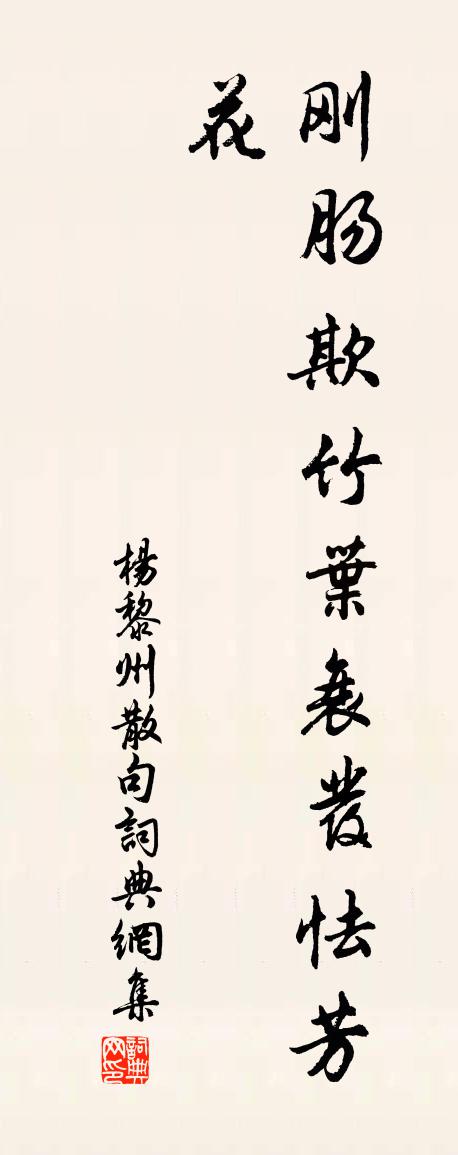 刚肠欺竹葉衰發怯芳
花
楊黎州散句詞典網集
詞典网印